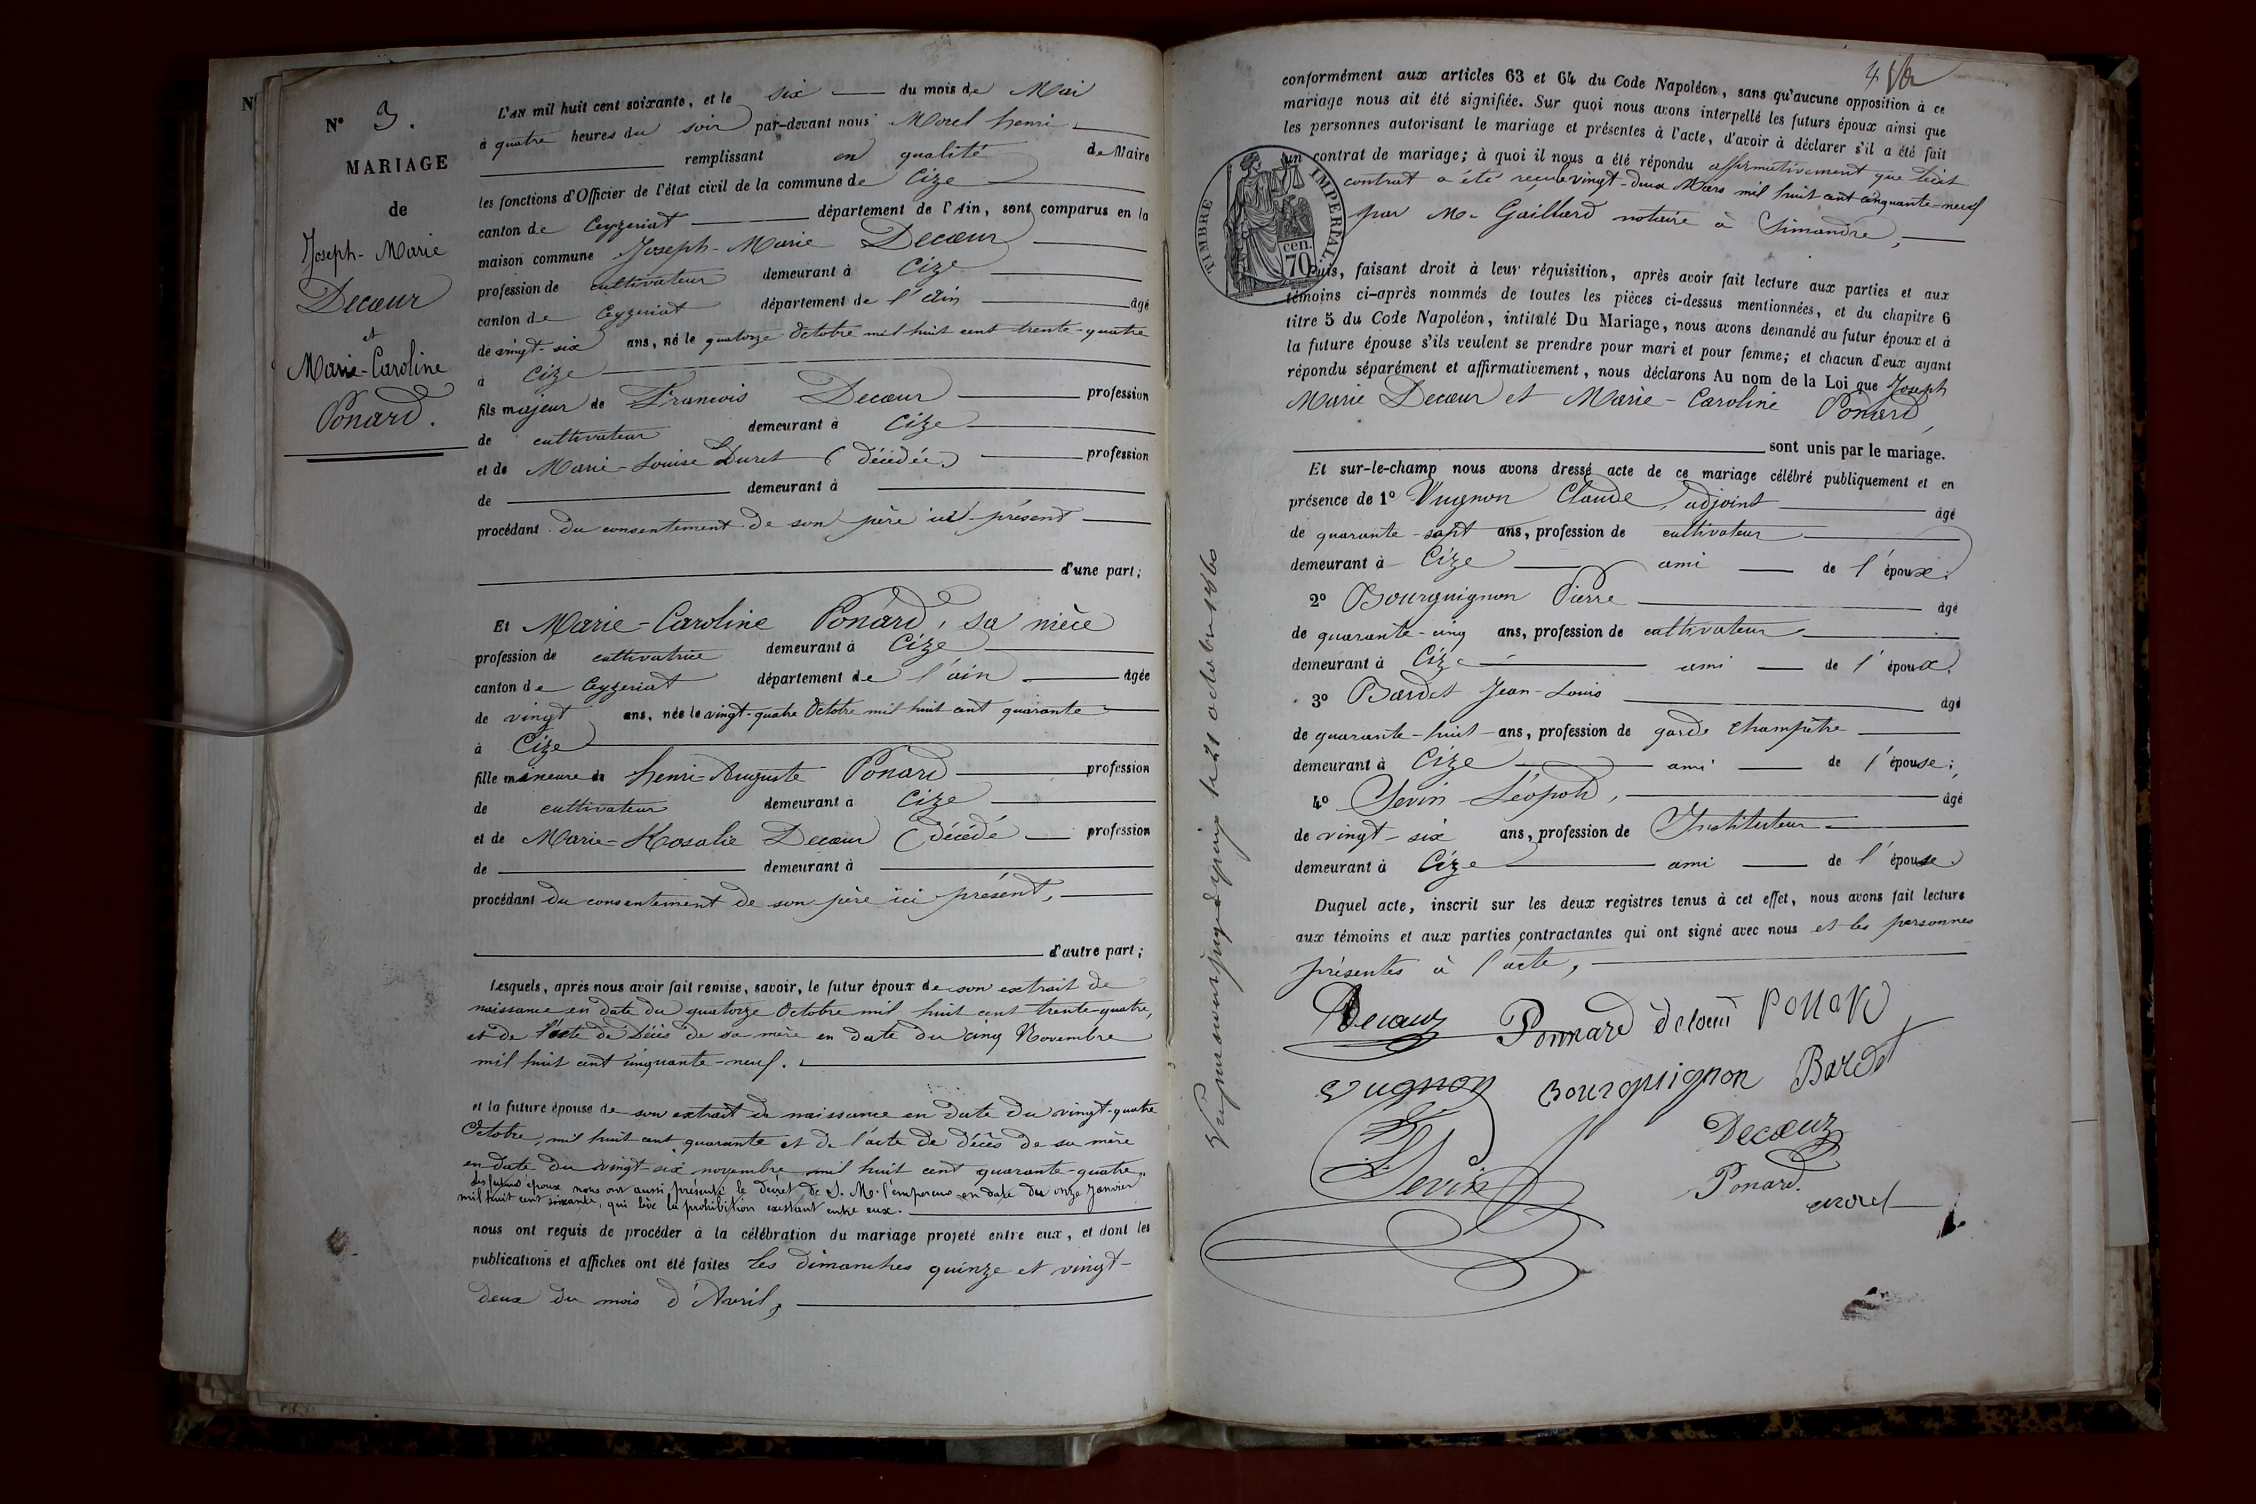 N
N° 3.
MARIAGE
de
Joseph-Marie
Decœur
et
Marie-Caroline
Ponard.
L'AN mil huit cent soixante, et le six du mois de Mai
à quatre heures du soir par-devant nous Morel henri
remplissant en qualité de Maire
les fonctions d'Officier de l'état civil de la commune de Cize
canton de Ceyzeriat département de l'Ain, sont comparus en la
maison commune Joseph-Marie Decœur
profession de cultivateur demeurant à Cize
canton de Ceyzeriat département de l'Ain âgé
de vingt-six ans, né le quatorze Octobre mil huit cent trente-quatre
à Cize
fils majeur de Francois Decœur profession
de cultivateur demeurant à Cize
et de Marie-Louise Duret (décédée) profession
de demeurant à
procédant du consentement de son père ici présent
d'une part;
Et Marie-Caroline Ponard, sa nièce
profession de cultivatrice demeurant à Cize
canton de Ceyzeriat département de l'ain âgée
de vingt ans, née le vingt-quatre Octobre mil huit cent quarante
à Cize
fille mineure de henri-Auguste Ponard profession
de cultivateur demeurant à Cize
et de Marie-Rosalie Decœur (décédé profession
de demeurant à
procédant du consentement de son père ici présent,
d'autre part;
Lesquels, après nous avoir fait remise, savoir, le futur époux de son extrait de
naissance en date du quatorze Octobre mil huit cent trente-quatre,
et de l'acte de décès de sa mère en date du cinq Novembre
mil huit cent cinquante-neuf.
et la future épouse de son extrait de naissance en date du vingt-quatre
Octobre, mil huit cent quarante et de l'acte de décès de sa mère
en date du vingt-six novembre mil huit cent quarante-quatre.
Les futurs époux nous ont aussi présenté le décret de S. M. l'empereur en date du onze Janvier
mil huit cent soixante, qui lève la prohibition existant entre eux.
nous ont requis de procéder à la célébration du mariage projeté entre eux, et dont les
publications et affiches ont été faites les dimanches quinze et vingt-
deux du mois d'Avril,
conformément aux articles 63 et 64 du Code Napoléon, sans qu'aucune opposition à ce
mariage nous ait été signifiée. Sur quoi nous avons interpellé les futurs époux ainsi que
les personnes autorisant le mariage et présentes à l'acte, d'avoir à déclarer s'il a été fait
un contrat de mariage; à quoi il nous a été répondu affirmativement que ledit
contrat a été reçu le vingt-deux Mars mil huit cent cinquante-neuf
par Me Gaillard notaire à Simandre,
TIMBRE IMPERIAL
70 cen.
Puis, faisant droit à leur réquisition, après avoir fait lecture aux parties et aux
témoins ci-après nommés de toutes les pièces ci-dessus mentionnées, et du chapitre 6
titre 5 du Code Napoléon, intitulé Du Mariage, nous avons demandé au futur époux et à
la future épouse s'ils veulent se prendre pour mari et pour femme; et chacun d'eux ayant
répondu séparément et affirmativement, nous déclarons Au nom de la Loi que Joseph
Marie Decœur et Marie-Caroline Ponard,
sont unis par le mariage.
Et sur-le-champ nous avons dressé acte de ce mariage célébré publiquement et en
présence de 1° Vugnon Claude, adjoint âgé
de quarante-sept ans, profession de cultivateur
demeurant à Cize ami de l'époux;
2° Bourguignon Pierre âgé
de quarante-cinq ans, profession de cultivateur
demeurant à Cize ami de l'époux;
3° Bardet Jean-Louis âgé
de quarante-huit ans, profession de garde champêtre
demeurant à Cize ami de l'épouse;
4° Sevin Léopold, âgé
de vingt-six ans, profession de Instituteur
demeurant à Cize ami de l'épouse.
Duquel acte, inscrit sur les deux registres tenus à cet effet, nous avons fait lecture
aux témoins et aux parties contractantes qui ont signé avec nous et les personnes
présentes à l'acte,
Decœur Ponnard Ponard
Vugnon Bourguignon Bardet
Decœur
L. Sevin
Ponard.
Morel
21 octobre 1860